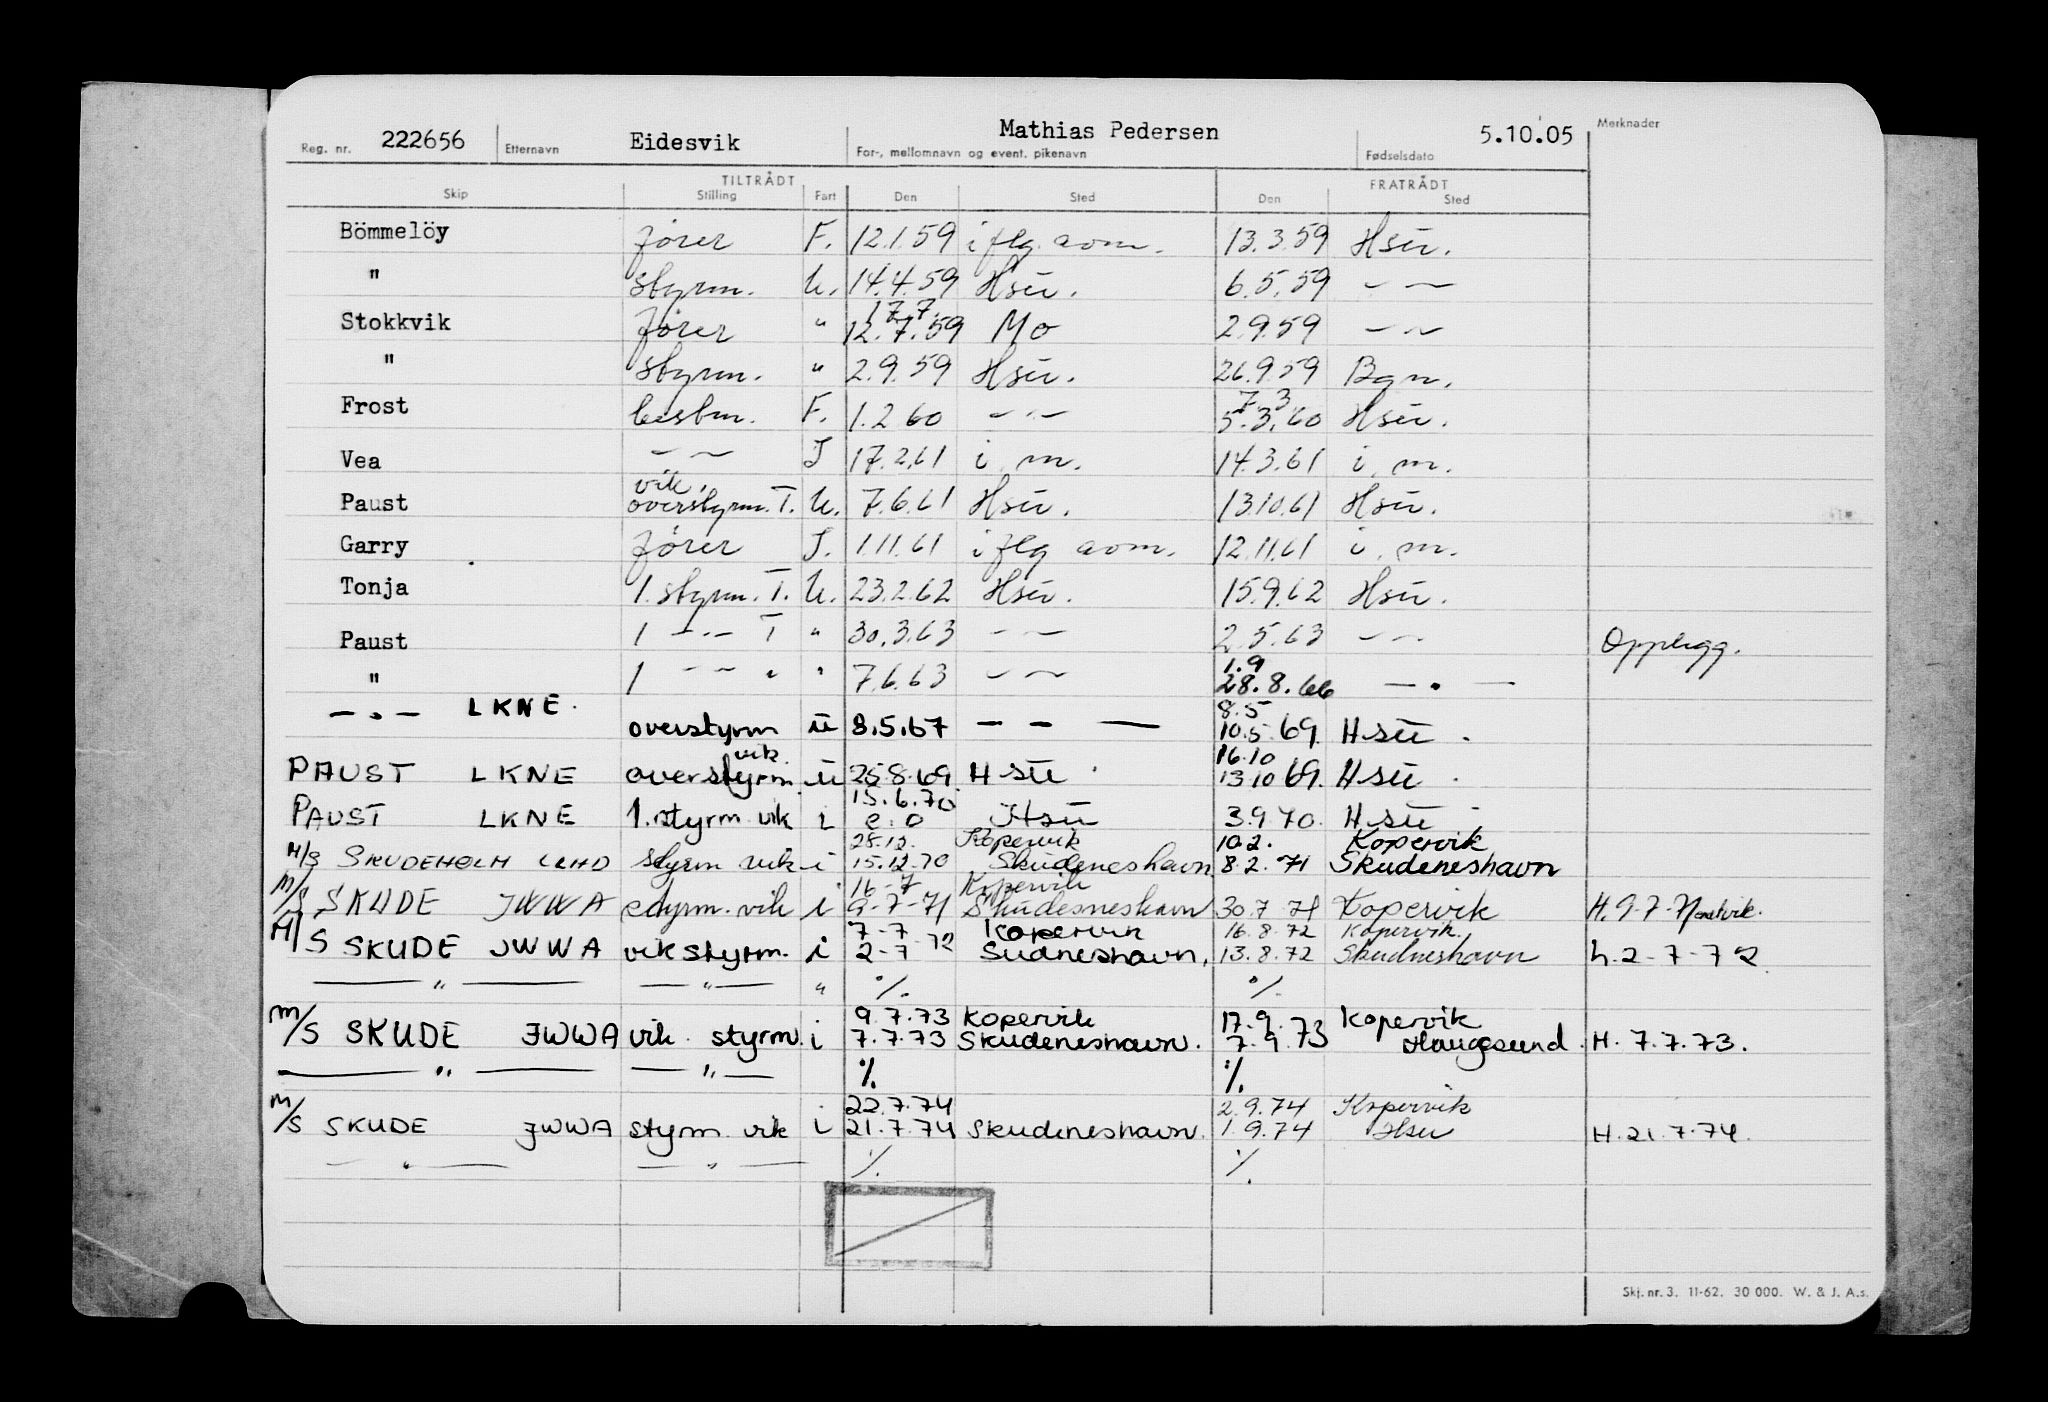 Reg. nr. 222656 Etternavn Eidesvik For-, mellomnavn og event. pikenavn Mathias Pedersen Fødselsdato 5.10.05 Merknader
TILTRÅDT FRATRÅDT
Skip Stilling Fart Den Sted Den Sted
Bömmelöy fører F. 12.1.59 i flg. avm. 13.3.59 Hsu.
" styrm. U. 14.4.59 Hsu. 6.5.59 — ~
17.7
Stokkvik fører " 12.7.59 Mo 2.9.59 — ~
" styrm. " 2.9.59 Hsu. 26.9.59 Bgn.
7 3
Frost bestm. F. 1.2 60 — " — 5.3.60 Hsu.
Vea — ~ I 17.2.61 i. m. 14.3.61 i. m.
vik.
Paust overstyrm. T. U. 7.6.61 Hsu. 13.10.61 Hsu.
Garry fører I. 1.11.61 i flg avm. 12.11.61 i. m.
Tonja 1. styrm. T. U. 23.2.62 Hsu. 15.9.62 Hsu.
Paust 1 — " — T " 30.3.63 — ~ 2.5.63 — ~ Opplegg.
1.9
" 1 — — " " 7.6.63 — ~ 28.8.66 — " —
8.5
— " — LKNE. overstyrm u 8.5.67 — — — 10.5 69. H su .
vik. 16.10
PAUST LKNE overstyrm. u 25.8.69 H su . 13.10 69. H su .
15.6.70
PAUST LKNE 1. styrm vik i e.o Hsu 3.9 70. H su
28.12. Kopervik 10.2. Kopervik
M/S SKUDEHOLM LRHD styrm vik i 15.12.70 Skudeneshavn 8.2.71 Skudeneshavn
16-7 Kopervik
M/S SKUDE JWWA styrm. vik i 9-7-71 Skudesneshavn 30.7 71 Kopervik H. 9-7-71
7-7 Kopervik 16.8.72 Kopervik.
M/S SKUDE JWWA vik styrm. i 2-7-72 Sudneshavn. 13.8.72 Skudneshavn h. 2-7-72
— " — — " — " %. %.
9.7.73 Kopervik 17.9.73 Kopervik
M/S SKUDE JWWA vik. styrm. i 7.7.73 Skudeneshavn. 7.9.73 Haugesund. H. 7.7.73.
— " — — " — %. %.
22.7.74 2.9.74 Kopervik
M/S SKUDE JWWA styrm. vik i 21.7.74 Skudeneshavn. 1.9.74 Hsu H. 21.7.74.
— " — — " — %. %.
Skj. nr. 3. 11-62. 30 000. W. & J. A.s.